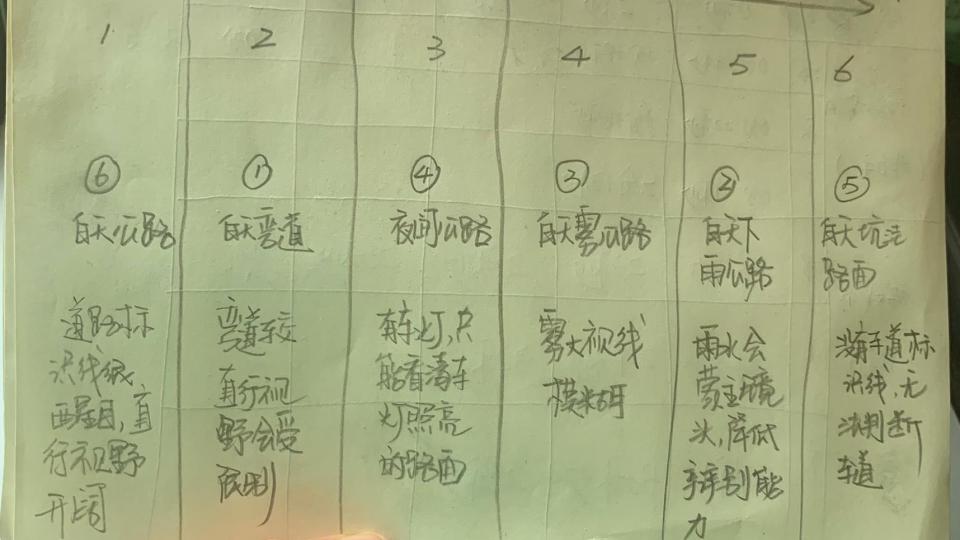 1 2 3 4 5 6
⑥ ① ④ ③ ② ⑤
白天公路
白天弯道
夜间公路
白天雾公路
白天下
雨公路
白天坑洼
路面
道路标
识线很
醒目,直
行视野
开阔
弯道较
直行视
野会受
限制
有车灯,只
能看清车
灯照亮
的路面
雾大视线
模糊
雨水会
蒙住镜
头,降低
辩别能
力
没有车道标
识线,无
法判断
车道